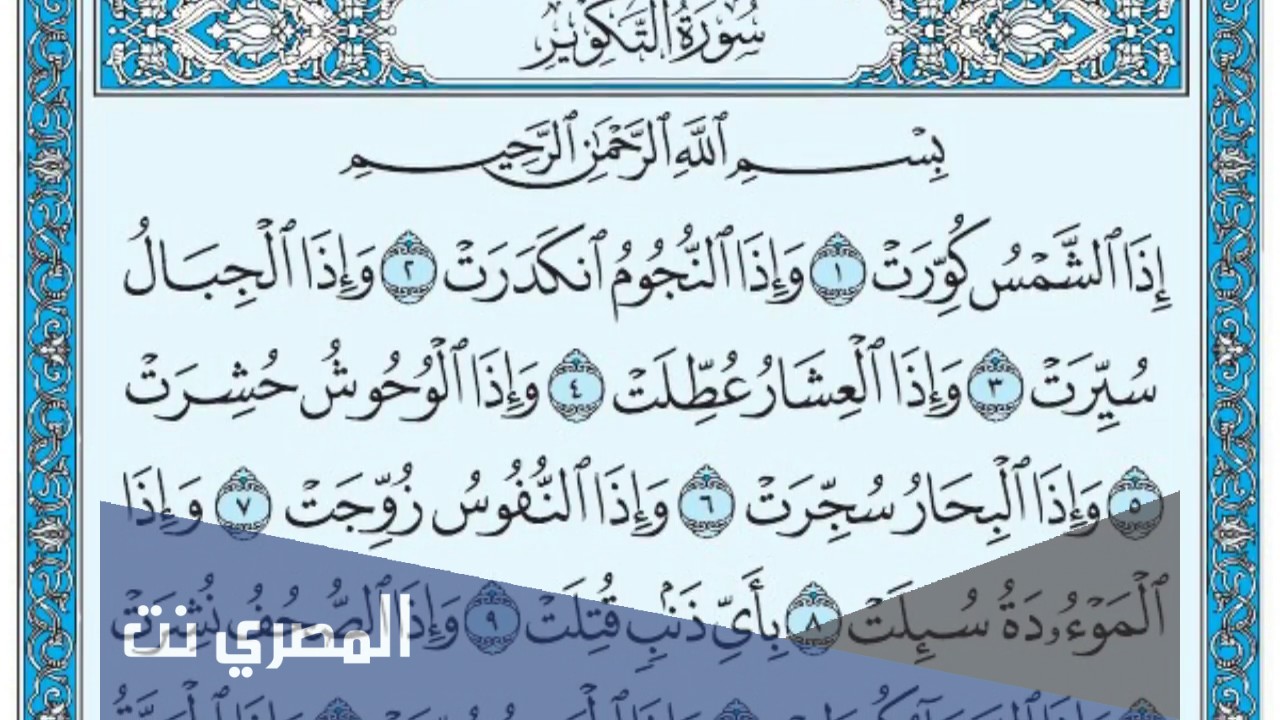 سُورَةُ التَّكْوِيرِ
بِسْمِ ٱللَّهِ ٱلرَّحْمَٰنِ ٱلرَّحِيمِ
إِذَا ٱلشَّمْسُ كُوِّرَتْ ١ وَإِذَا ٱلنُّجُومُ ٱنكَدَرَتْ ٢ وَإِذَا ٱلْجِبَالُ
سُيِّرَتْ ٣ وَإِذَا ٱلْعِشَارُ عُطِّلَتْ ٤ وَإِذَا ٱلْوُحُوشُ حُشِرَتْ
٥ وَإِذَا ٱلْبِحَارُ سُجِّرَتْ ٦ وَإِذَا ٱلنُّفُوسُ زُوِّجَتْ ٧ وَإِذَا
ٱلْمَوْءُۥدَةُ سُئِلَتْ ٨ بِأَىِّ ذَنۢبٍ قُتِلَتْ ٩ وَإِذَا ٱلصُّحُفُ نُشِرَتْ
المصري نت